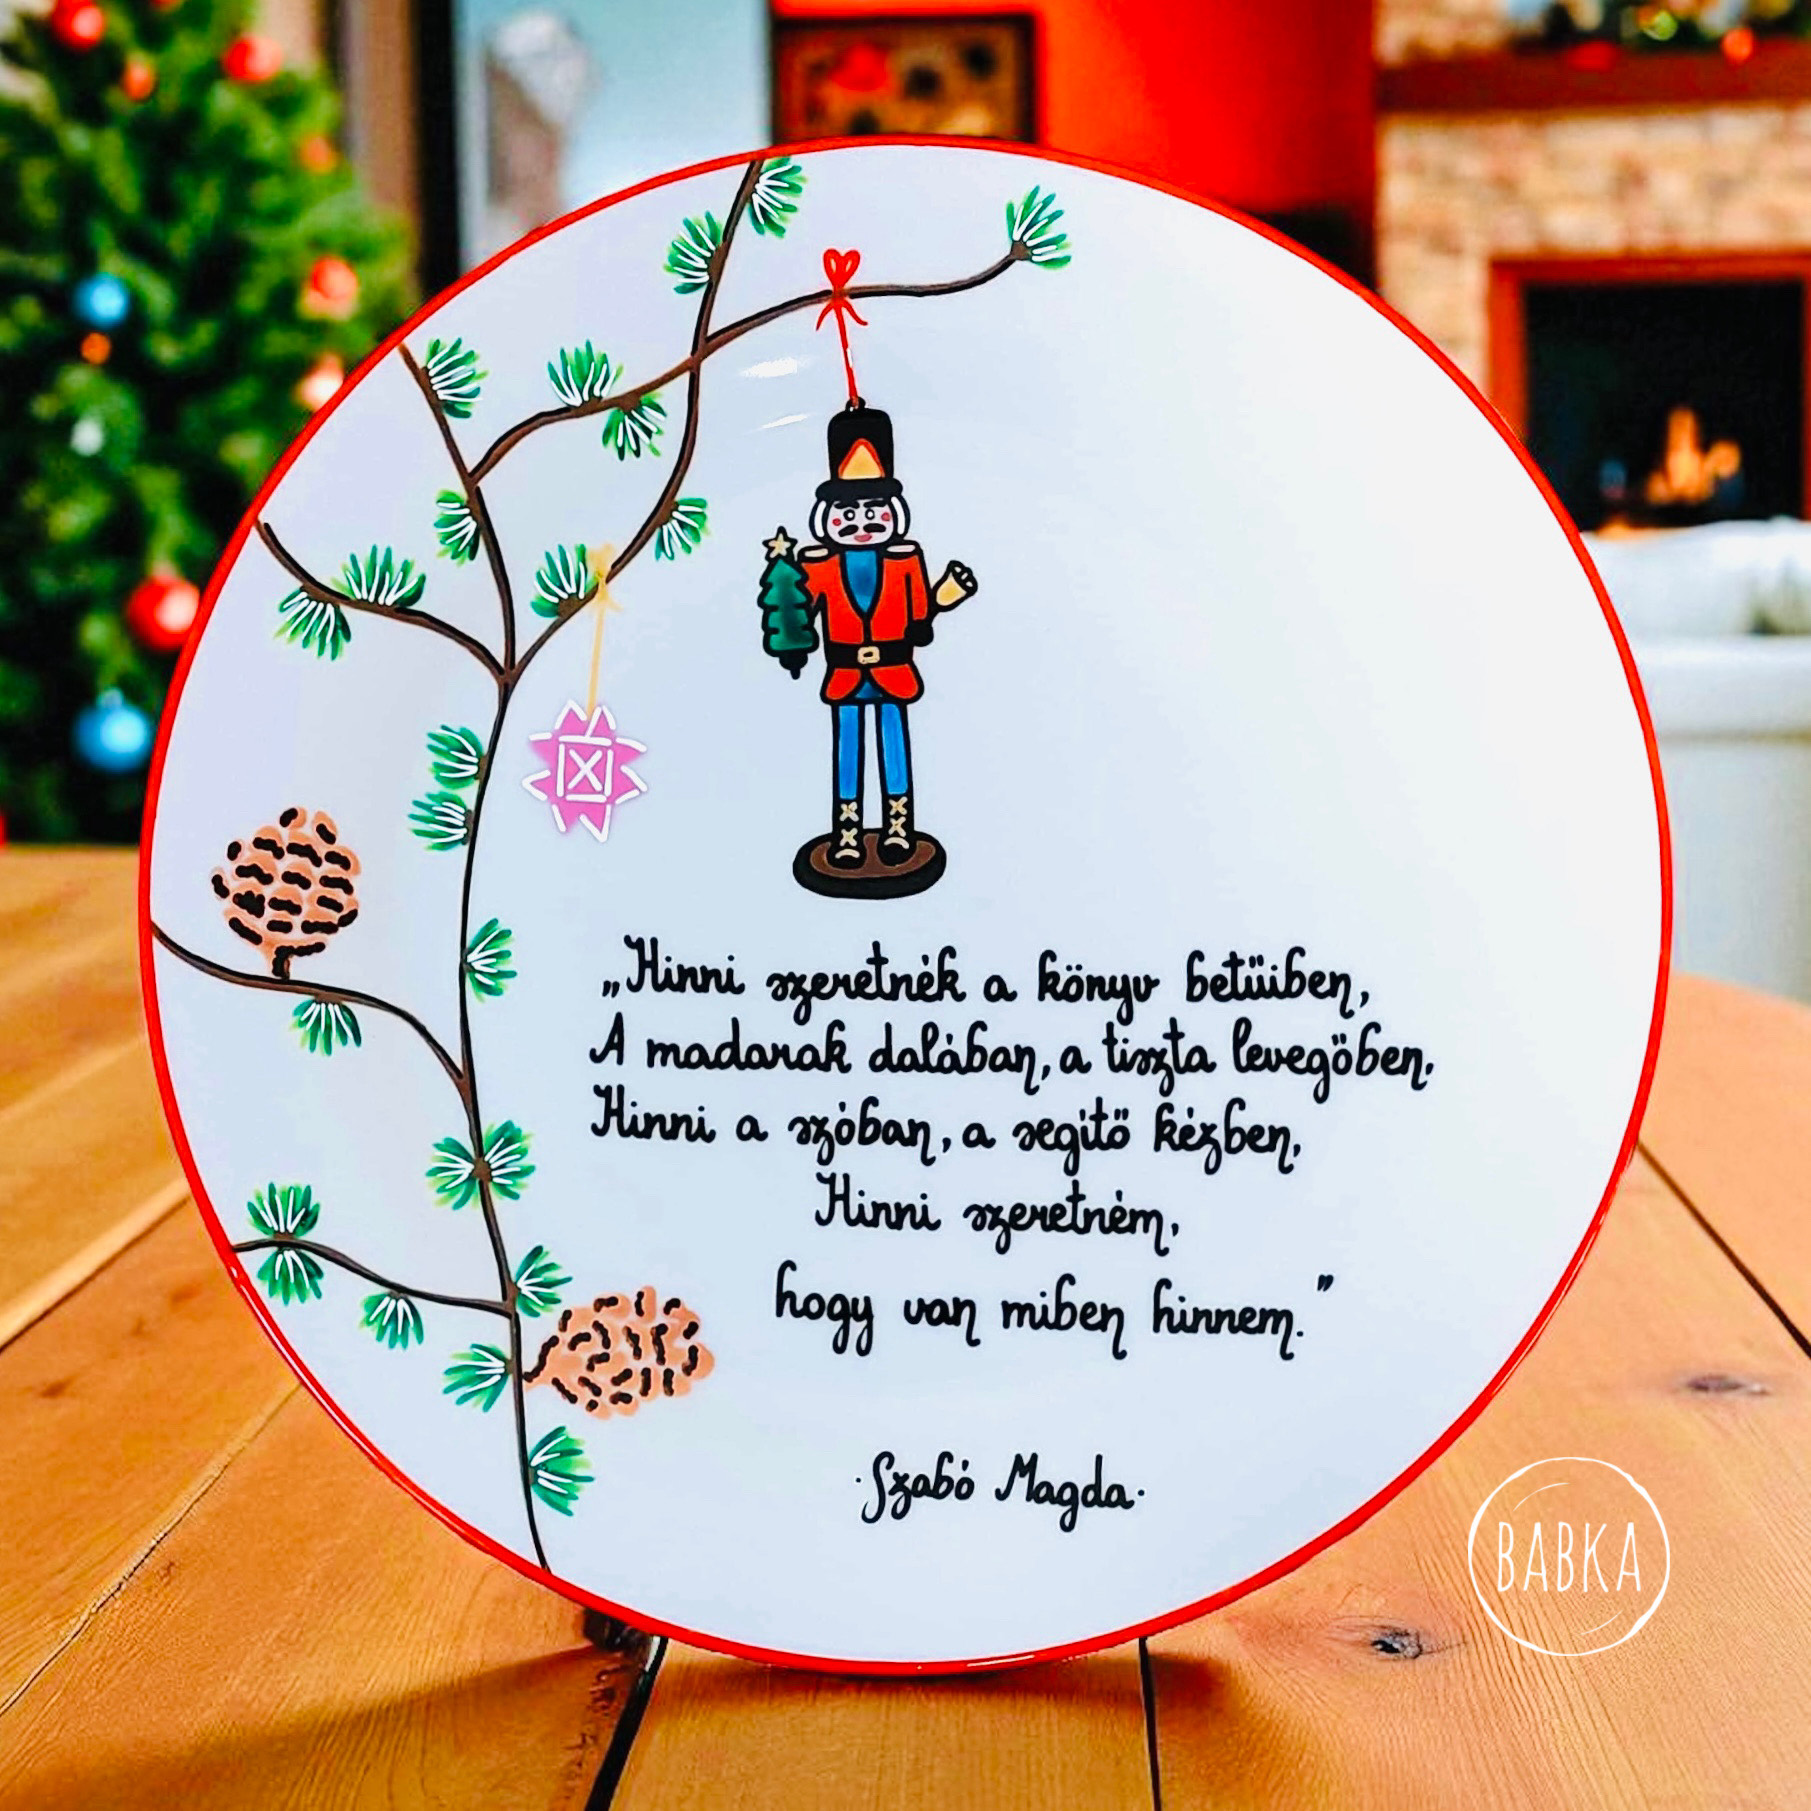 „Hinni szeretnék a könyv betűiben,
A madarak dalában, a tiszta levegőben.
Hinni a szóban, a segítő kézben,
Hinni szeretném,
hogy van miben hinnem."
·Szabó Magda·
BABKA